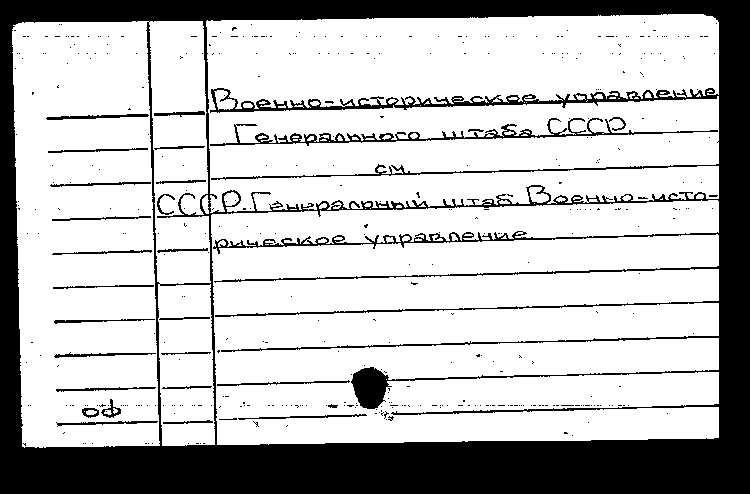 Военно-историческое управление
Генерального штаба СССР.
см.
СССР. Генеральный штаб. Военно-исто-
рическое управление
оф